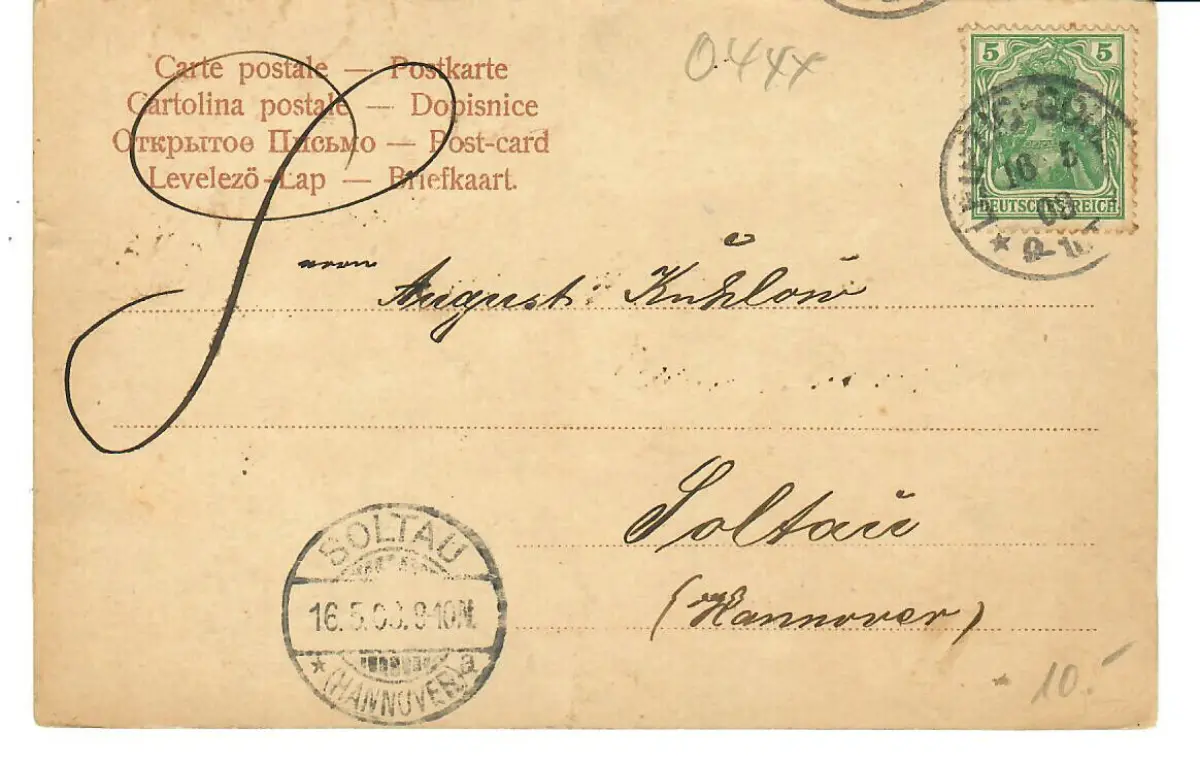 Carte postale — Postkarte
Cartolina postale — Dopisnice
Открытое Письмо — Post-card
Levelező-Lap — Briefkaart.
044x
5 5
DEUTSCHES REICH
LEIPZIG-GOH
16 5
Herrn August Kühlow
Soltau
(Hannover)
SOLTAU
16.5.03.8-10N.
* (HANNOVER) a
10.-